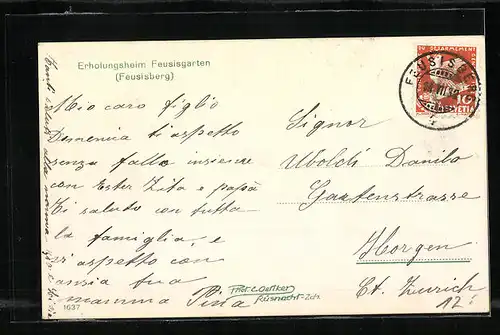 Erholungsheim Feusisgarten
(Feusisberg)
Mio caro figlio
Domenica ti aspetto
senza fallo insieme
con Ester Zita e papà
Ti saluto con tutta
la famiglia, e
t'aspetto con
ansia tua
mamma Pina
1637
Phot. C. Oetiker
Küsnacht-Zch.
Signor
Uboldi Danilo
Gartenstrasse
Horgen
Ct. Zurich
12
FEUSISBERG
10